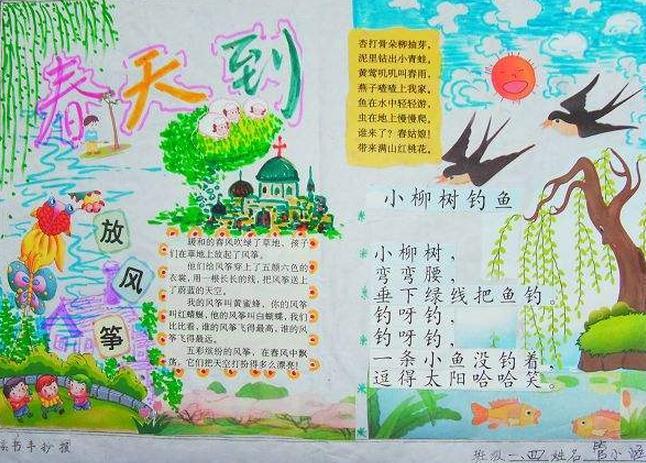 春天到
杏打骨朵柳抽芽，
泥里钻出小青蛙，
黄莺叽叽叫春雨，
燕子喳喳上我家，
鱼在水中轻轻游，
虫在地上慢慢爬，
谁来了？春姑娘！
带来满山红桃花。
放风筝
暖和的春风吹绿了草地，孩子
们在草地上放起了风筝。
他们给风筝穿上了五颜六色的
衣裳，用一根长长的线，把风筝送上
了蔚蓝的天空。
我的风筝叫黄蜜蜂，你的风筝
叫红蜻蜓，他的风筝叫白蝴蝶，我们
比比看，谁的风筝飞得最高，谁的风
筝飞得最远。
五彩缤纷的风筝，在春风中飘
荡，它们把天空打扮得多么漂亮！
小柳树钓鱼
小柳树，
弯弯腰，
垂下绿线把鱼钓。
钓呀钓，
钓呀钓，
一条小鱼没钓着，
逗得太阳哈哈笑。
读书手抄报
班级二.四 姓名 小